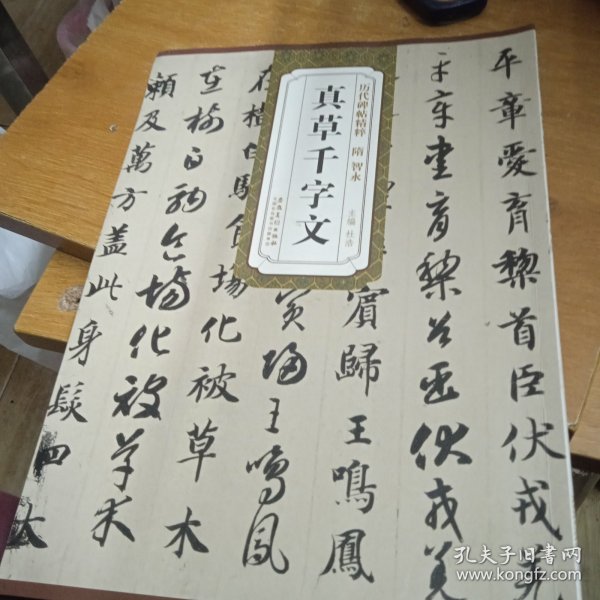 历代碑帖精粹 隋 智永
真草千字文
主编 杜浩
安徽美術出版社
平章愛育黎首臣伏戎羌
平章愛育黎首臣伏戎羌
賓歸王鳴鳳
賓歸王鳴鳳
在樹白駒食場化被草木
在樹白駒食場化被草木
賴及萬方蓋此身髮四大
孔夫子旧书网
www.kongfz.com